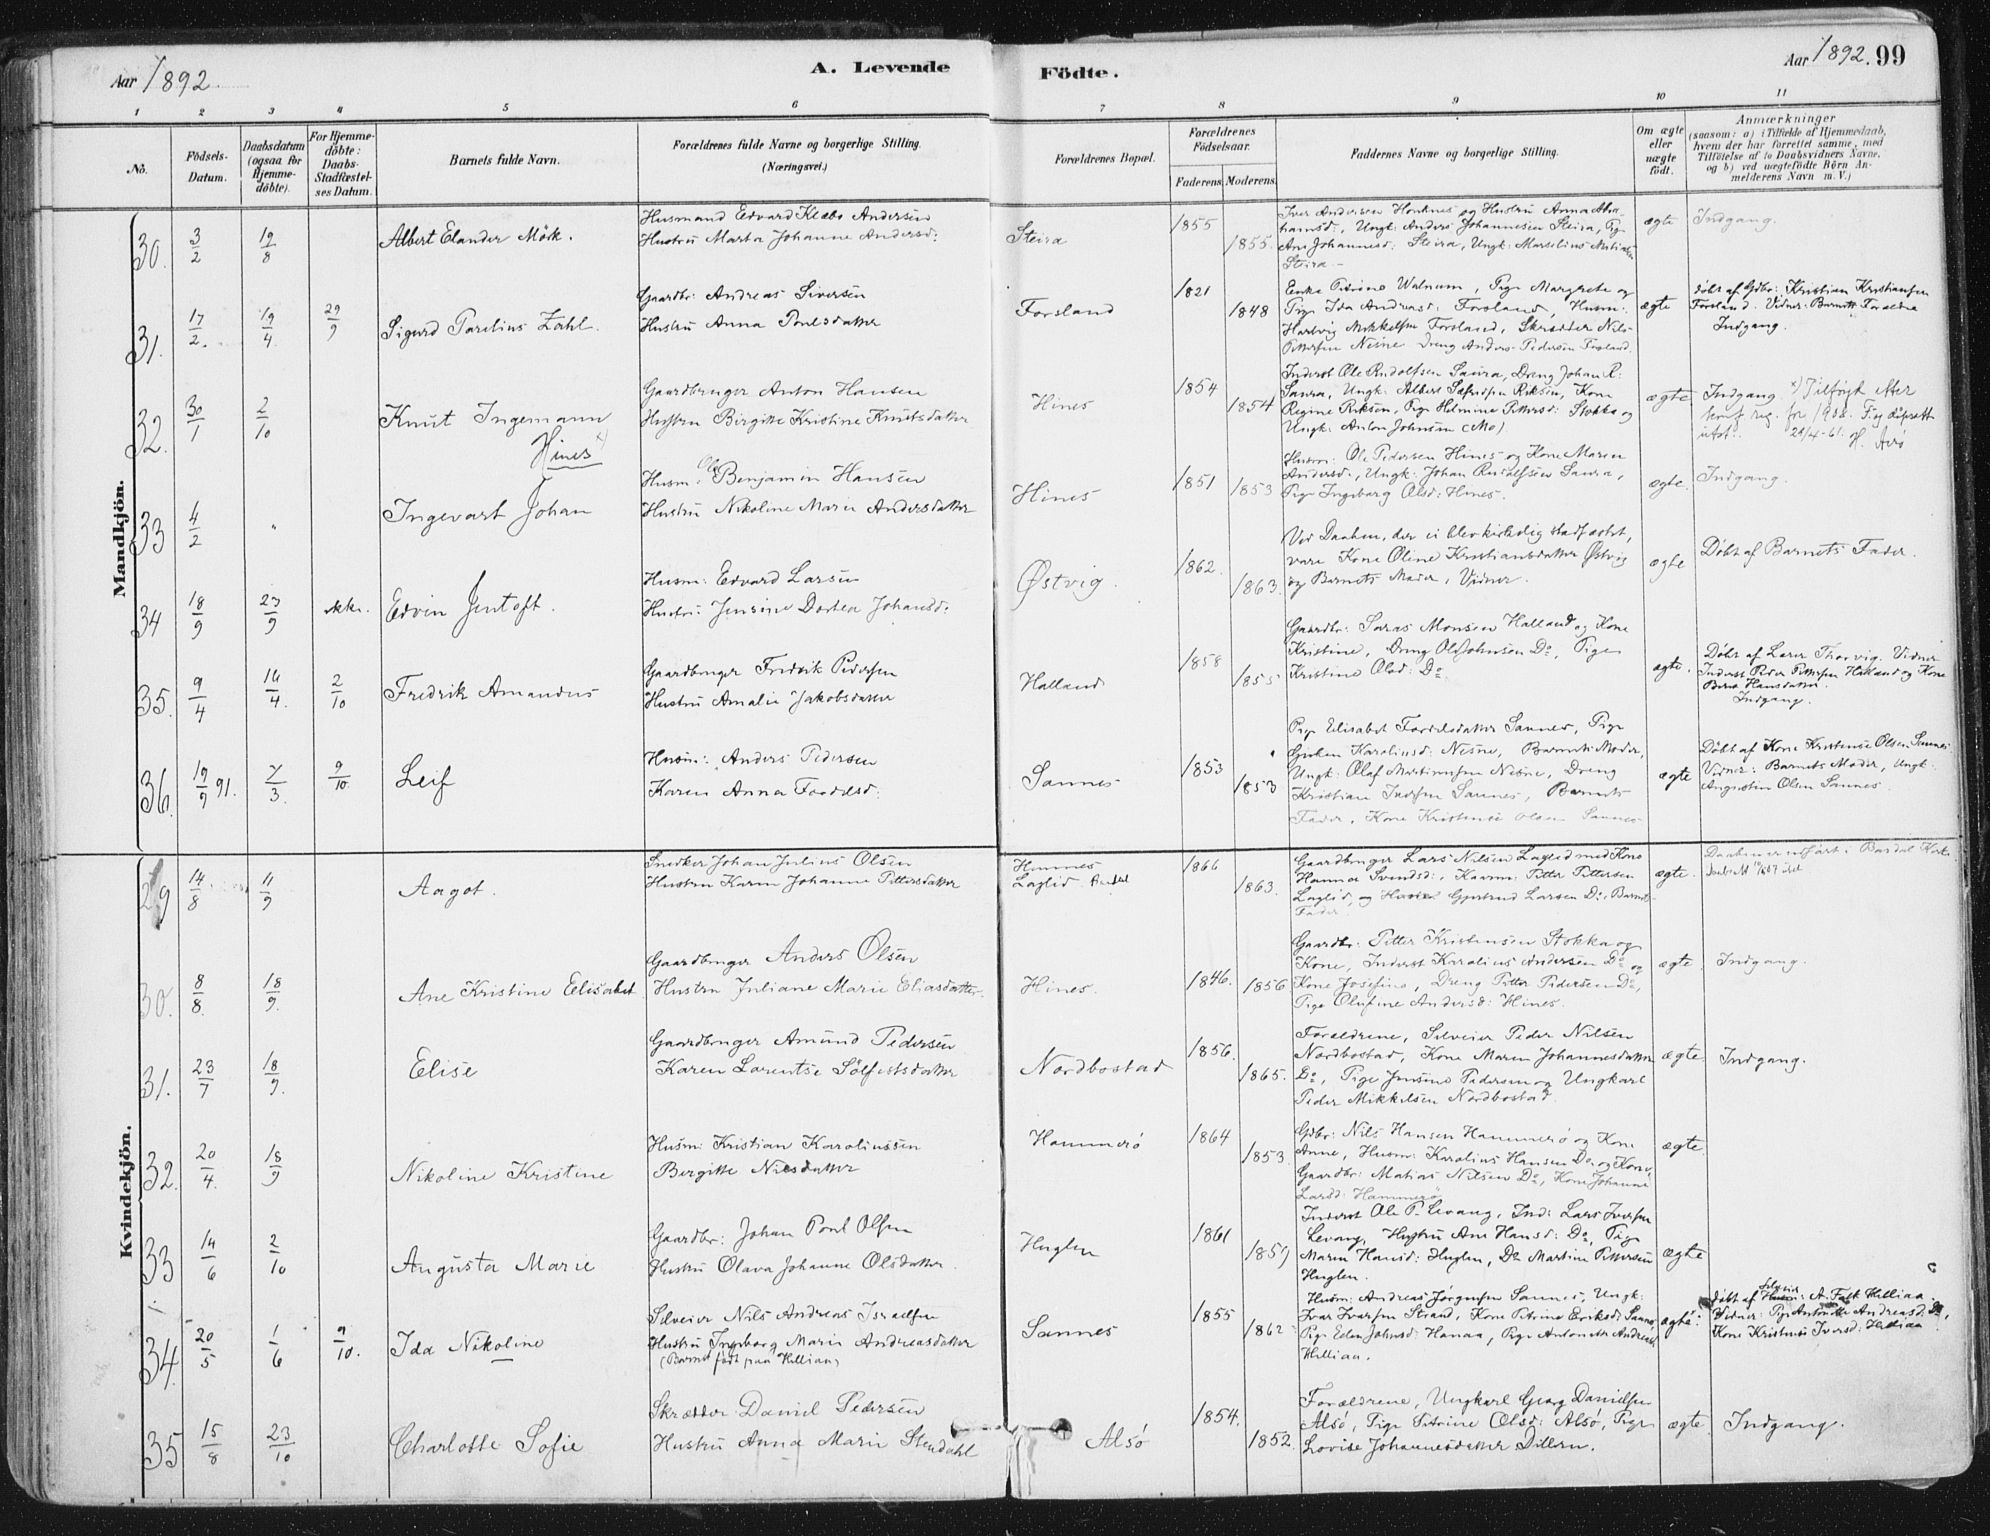 Aar 1892
A. Levende
Födte.
Aar 1892. 99
1 2 3 4 5 6 7 8 9 10 11
No.
Födsels-Datum.
Daabsdatum (ogsaa for Hjemme-döbte).
For Hjemme-döbte: Daabs-Stadfæstel-ses Datum.
Barnets fulde Navn.
Forældrenes fulde Navne og borgerlige Stilling. (Næringsvei.)
Forældrenes Bopæl.
Forældrenes Födselsaar.
Faderens Moderens.
Faddernes Navne og borgerlige Stilling.
Om ægte eller uægte födt.
Anmærkninger
(saasom: a) i Tilfælde af Hjemmedaab, hvem der har forrettet samme, med Tilföielse af to Daabsvidners Navne, og b) ved uægtefödte Börn An-melderens Navn m. V.)
Mandkjön.
30. 3/2 19/8 Albert Elander Mörk.
Husmand Edvard Klæbo Andersen
Hustru Marta Johanne Andersd:
Steira 1855 1855.
Iver Andersen Honknes og Hustru Anna Abra-
hamsd:, Ungk: Anders Johannesen Steira, Pige
Ane Johannesd: Steira, Ungk: Marselius
Steira
ægte Indgang.
31. 17/2. 19/4 29/9 Sigurd Parelius Zahl.
Gaardbr: Andreas Siversen
Hustru Anna Poulsdatter
Forsland 1821 1848
Enke Petrine Walnum, Pige Margrete og
Pige Ida Andreasd: Forsland, Husm:
Hartvig Mikkelsen Forsland, Skrædder Nils
Pettersen Nesne Dreng Anders Pedersen Forsland.
ægte döbt af Gdbr: Kristian Kristiansen
Forsland. Vidner: Barnets Forældre
Indgang.
32. 30/1 2/10 Knut Ingemann
Hines x)
Gaardbruger Anton Hansen
Hustru Birgitte Kristine Knutsdatter
Hines 1854 1854
Inderst Ole Rudolfsen Saura, Dreng Johan R:
Saura, Ungk: Albert Riksen, Kone
Regine Riksen, Pige Helmine Pettersd: Stokka og
Ungk: Anton Johnsen (Mo)
ægte Indgang x) Tilføyt etter
reg. for
utst. 21/4-61. H.
33 4/2 " Ingevart Johan
Husm: Ole Benjamin Hansen
Hustru Nikoline Marie Andersdatter
Hines 1851 1853
Husm: Ole Pedersen Hines og Kone Maren
Andersd:, Ungk: Johan Rudolfsen Saura,
Pige Ingeborg Olsd: Hines.
ægte. Indgang.
34 18/9 23/9 ikke. Edvin Jentoft.
Husm: Edvard Larsen
Hustru: Jensine Dortea Johansd:
Østvig. 1862. 1863.
Ved Daaben, der ei blev kirkelig stadfæstet,
vare Kone Oline Kristiansdatter Østvig
og Barnets Moder, Vidner.
ægte Döbt af Barnets Fader.
35. 9/4 14/4. 2/10 Fredrik Amandus
Gaardbruger Fredrik Pedersen
Hustru Amalie Jakobsdatter
Halland 1858 1855
Gaardbr: Saras Monsen Halland og Kone
Kristine, Dreng Ole Johnsen Do, Pige
Kristine Olsd: Do
ægte. Döbt af Lærer Thorvig. Vidner
Inderst Peder Pettersen Halland og Kone
Hansdatter.
Indgang.
36. 19/9 91. 7/3. 9/10. Leif
Husm: Anders Pedersen
Karen Anna Faddesd:
Sannes 1853 1853
Pige Elisabet Sannes, Pige
Karolinsd: Nesne, Barnets Moder,
Ungk: Olaf Martinusen Nesne, Dreng
Kristian Sannes, Barnets
Fader, Kone Kristense Olsen Sannes
ægte Döbt af Kone Kristense Olsen Sannes
Vidner: Barnets Moder, Ungk.
Augustin Olsen Sannes.
Kvindekjön.
29 14/8 11/9 Aagot.
Snedker Johan Julius Olsen
Hustru Karen Johanne Pettersdatter
Hemnes
Laglid. Bardal
1866 1863.
Gaardbruger Lars Nilsen Laglid med Kone
Hanna Svendsd:, Petter Pettersen
Laglid, og Gjertrud Larsen Do. Barnets
Fader.
ægte. Daaben er udført i Bardal Kirke
30. 8/8. 18/9. Ane Kristine Elisabet
Gaardbruger Anders Olsen
Hustru Juliane Marie Eliasdatter.
Hines. 1846. 1856
Gaardbr: Petter Kristensen Stokka og
Kone, Inderst Karolius Andersen Do og
Kone Josefine, Dreng Petter Pedersen Do,
Pige Olufine Andersd: Hines.
ægte. Indgang.
31. 23/7 18/9. Elise
Gaardbruger Amund Pedersen
Karen Lorentse Sölfestsdatter
Nordbostad 1856. 1865.
Forældrene, Selveier Peder Nilsen
Nordbostad, Kone Maren Johannesdatter
Do, Pige Jensine Pedersen og Ungkarl
Peder Mikkelsen Nordbostad.
ægte Indgang.
32. 20/4. 18/9 Nikoline Kristine
Husm: Kristian Karoliussen
Bergitte Nilsdatter
Hammerö 1864 1853.
Gdbr: Nils Hansen Hammerö og Kone
Anne, Husm: Karolius Hansen Do og Kone,
Gaardbr: Matias Nilsen Do, Kone Johanne
Larsd: Hammerö
ægte.
33 14/6 2/10 Augusta Marie
Gaardbr: Johan Poul Olsen
Hustru Olava Johanne Olsdatter.
Huglen 1861 1859
Inderst Ole P. Levang, Ind: Lars Iversen
Levang, Hustru Ane Hansd: Do, Pige
Maren Hansd: Huglen, Do Martine Pettersen
Huglen.
ægte
34. 20/5 1/6 9/10. Ida Nikoline
Selveier Nils Andreas Israelsen
Hustru Ingeborg Marie Andreasdatter
(Barnet födt paa Hellian)
Sannes 1855 1862
Husm: Andreas Jørgensen Sannes, Ungk:
Ivar Ivarsen Strand, Kone Petrine Eriksd: Sannes
Pige Elen Johnsd: Hanaa, Pige Antonette Andreasd
Hellian.
ægte. Döbt af Selveier: A. Falk Hellian.
Vidner: Pige Antonette Andreasd: Do,
Kone Kristense Iversd: Hellian
35 15/8 23/10 Charlotte Sofie
Skrædder Daniel Pedersen
Hustru Anna Marie Stendahl
Alsö 1854. 1852.
Forældrene, Ungkarl Georg Danielsen
Alsö, Pige Petrine Olsd: Alsö, Pige
Lovise Johannesdatter Dillern.
ægte. Indgang.